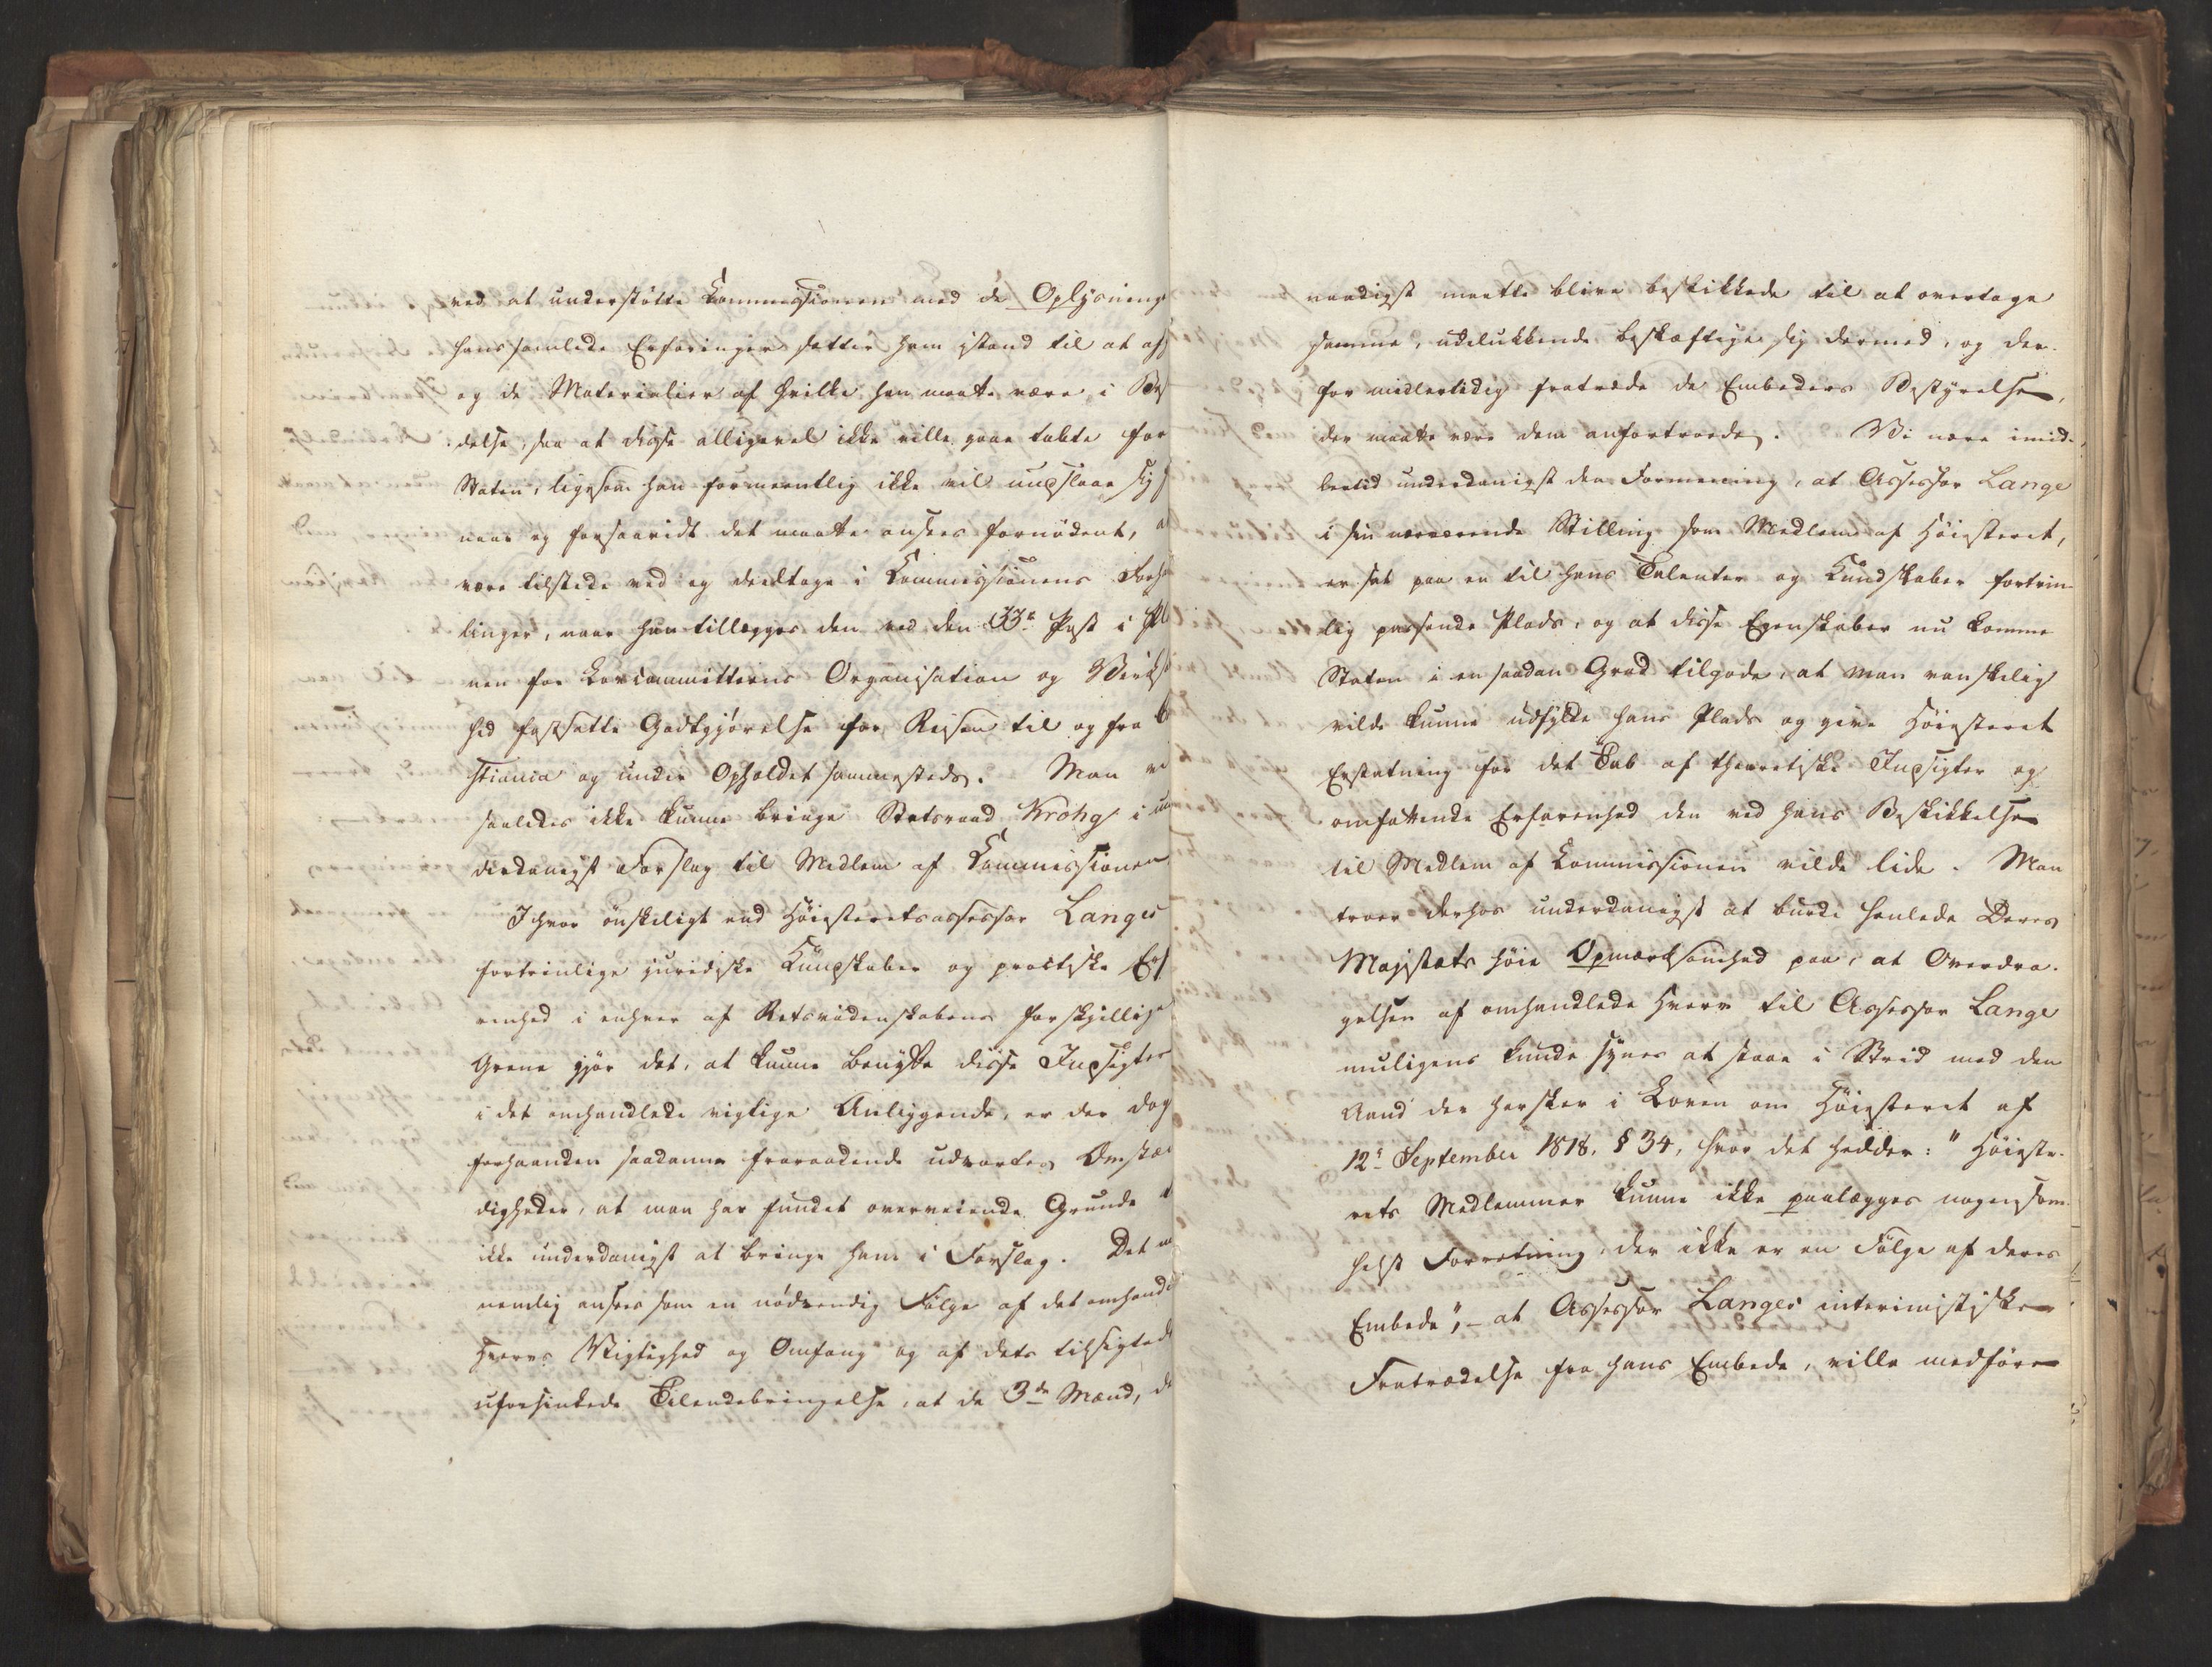 ved at understøtte Kommissionen med de Oplysning
hans samlede Erfaringer sætter ham istand til at af
og de Materialier af hvilke han maatte være i Bes
delse, saa at disse alligevel ikke ville gaae tabte for
Staten, ligesom han formeentlig ikke vil undslaae sig
naar og forsaavidt det maatte ansees fornødent,
være tilstede ved og deeltage i Commissionens Forha
linger, naar han tillægges den ved den 33te Post i Pl
nen for Lovcommitteens Organisation og Virks
hed fastsatte Godtgjørelse for Reisen til og fra
stiania og under Opholdet sammesteds. Man
saaledes ikke kunne bringe Statsraad Krohg i un
derdanigst Forslag til Medlem af Commissionen
Ihvor ønskeligt end Høiesteretsassessor Langes
fortrinlige juridiske Kundskaber og practiske Erf
renhed i enhver af Retsvidenskabens forskjellige
Grene gjør det, at kunne benytte disse Indsigter
i det omhandlede vigtige Anliggende, er der dog
forhaanden saadanne fraraadende udvortes Omstæn
digheder, at man har fundet overveiende Grunde
ikke underdanigst at bringe ham i Forslag. Det
nemlig ansees som en nødvendig Følge af det omhand
Hvervs Vigtighed og Omfang og af dets tilsigtede
uforsinkede Tilendebringelse, at de 3de Mænd, d
naadigst maatte blive beskikkede til at overtage
samme, udelukkende beskæftige sig dermed, og der-
for midlertidig fratræde de Embeders Bestyrelse,
der maatte være dem anfortroede. Vi nære imid-
lertid underdanigst den Formening, at Assessor Lange
i sin nærværende Stilling som Medlem af Høiesteret,
er sat paa en til hans Talenter og Kundskaber fortrin-
lig passende Plads, og at disse Egenskaber nu komme
Staten i en saadan Grad tilgode, at man vanskelig
vilde kunne udfylde hans Plads og give Høiesteret
Erstatning for det Tab af theoretiske Indsigter og
omfattende Erfarenhed den ved hans Beskikkelse
til Medlem af Kommissionen vilde lide. Man
troer derhos underdanigst at burde henlede Deres
Majestæts høie Opmærksomhed paa, at Overdra-
gelsen af omhandlede Hverv til Assessor Lange
muligens kunde synes at staae i Strid med den
Aand der hersker i Loven om Høiesteret af
12te September 1818, § 34, hvor det hedder: "Høieste-
rets Medlemmer kunne ikke paalægges nogensom-
helst Forretning, der ikke er en Følge af deres
Embede", – at Assessor Langes interimistiske
Fratrædelse fra hans Embede, ville medføre